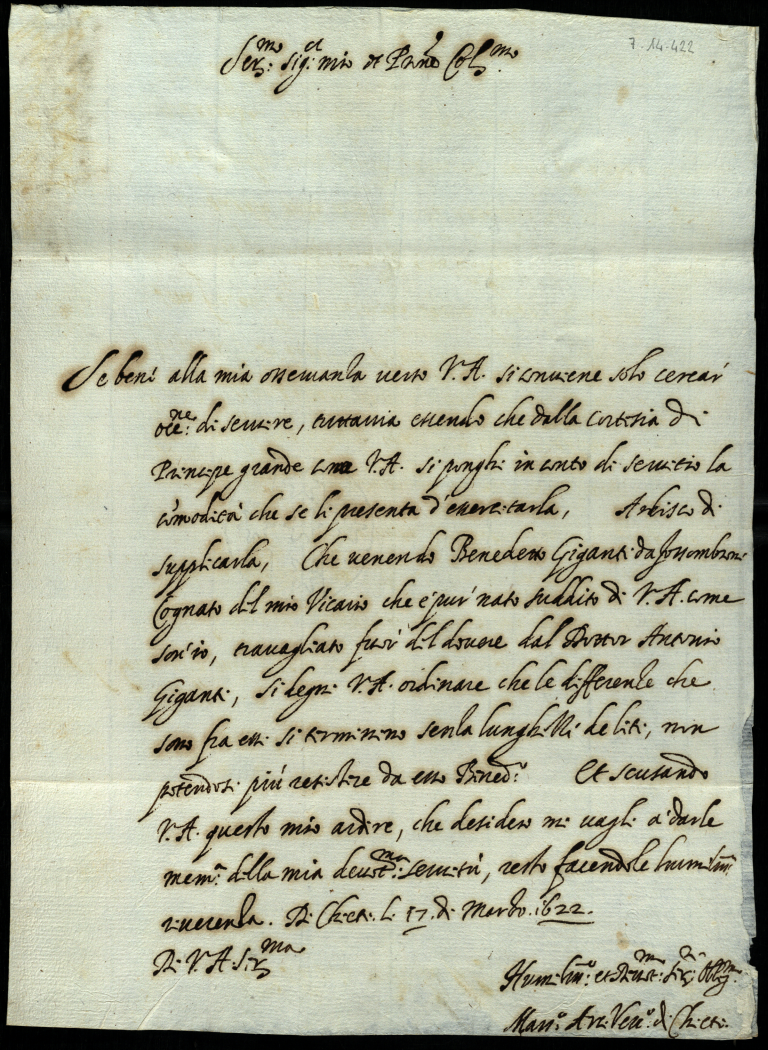 7-14-422
Ser.mo Sig.r mio et P̃rone Col.mo
Se bene alla mia osseruanza uerso V.A. si conuiene solo cercar
occ.ne di seruire, tuttauia essendo che dalla cortesia di
Principe grande come V.A. si ponghi in conto di seruitio la
cõmodità che se li presenta d'essercitarla, Ardisco di
supplicarla, Che uenendo Benedetto Giganti da fossombrone
Cognato del mio Vicario che è pur nato suddito di V.A. come
son'io, trauagliato fuor del douere dal Dottor Antonio
Giganti, si degni V.A. ordinare che le differenze che
sono fra essi si terminino senza lunghezza de liti, non
potendosi più resistere da esso Bened.o Et scusando
V.A. questo mio ardire, che desidero mi uagli a darle
mem.a della mia deuot.ma seruitù, resto facendole humiliss.ma
riuerenza. Di Chieti li 17. di Marzo. 1622.
Di V.A. Ser.ma
Humiliss.o et Deuot.mo Ser.re Obl.mo
Mars.o Arc.Vesc.o di Chieti